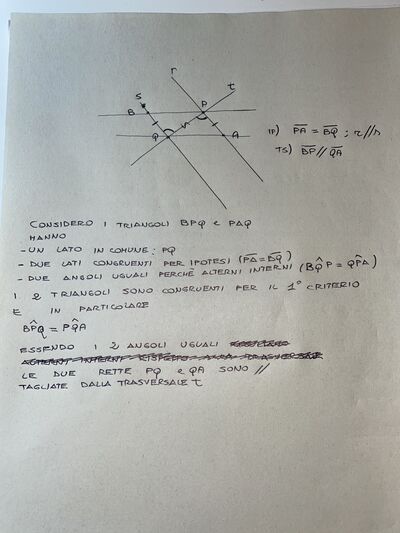 r
t
S
B
P
Q
A
IP) PA = BQ ; r//s
TS) BP // QA
CONSIDERO I TRIANGOLI BPQ e PAQ
HANNO
- UN LATO IN COMUNE: PQ
- DUE LATI CONGRUENTI PER IPOTESI (PA=BQ)
- DUE ANGOLI UGUALI PERCHÉ ALTERNI INTERNI (BQ̂P = QP̂A)
I 2 TRIANGOLI SONO CONGRUENTI PER IL 1° CRITERIO
E IN PARTICOLARE
BP̂Q = PQ̂A
ESSENDO I 2 ANGOLI UGUALI
LE DUE RETTE PQ e QA SONO //
TAGLIATE DALLA TRASVERSALE t